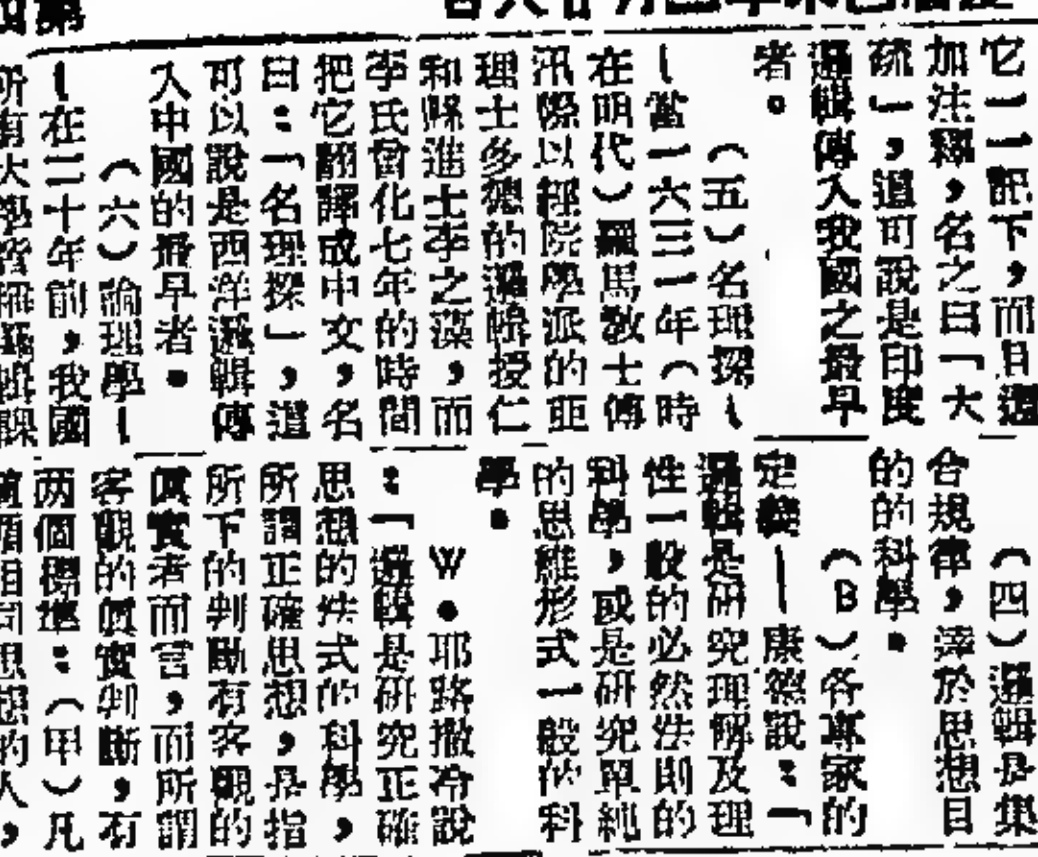 它一一記下，而且還
加注釋，名之曰「大
疏」，這可說是印度
邏輯傳入我國之最早
者。
（五）名理探—
—當一六三一年（時
在明代）羅馬教士傅
汎際以經院學派的亞
理士多德的邏輯授仁
和縣進士李之藻，而
李氏曾化七年的時間
把它翻譯成中文，名
曰：「名理探」，這
可以說是西洋邏輯傳
入中國的最早者。
（六）論理學—
—在二十年前，我國
所有大學皆稱邏輯課
（四）邏輯是集
合規律，於思想目
的的科學。
（B）各專家的
定義—康德說：「
邏輯是研究理解及理
性一般的必然法則的
科學，或是研究單純
的思維形式一般的科
學。
W．耶路撒冷說
：「邏輯是研究正確
思想的法式的科學，
所謂正確思想，是指
所下的判斷有客觀的
眞實者而言，而所謂
客觀的眞實判斷，有
两個標準：（甲）凡
相同思想的人，